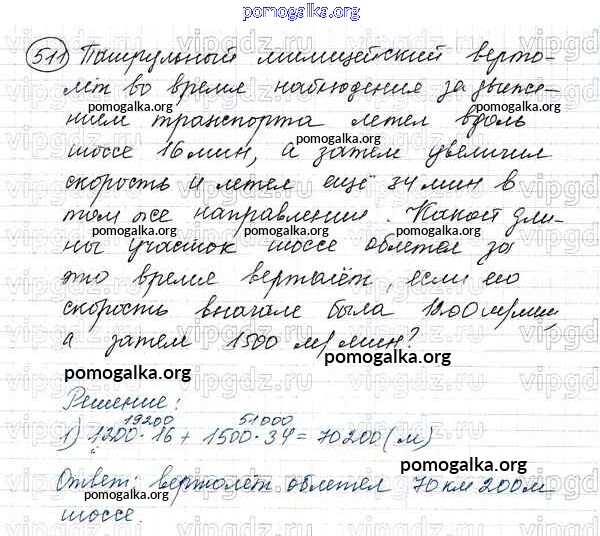 pomogalka.org
511 Патрульный милицейский верто-
лёт во время наблюдения за движе-
pomogalka.org
нием транспорта летел вдоль
pomogalka.org
шоссе 16 мин, а затем увеличил
pomogalka.org
скорость и летел ещё 34 мин в
pomogalka.org
том же направлении. Какой дли-
pomogalka.org
ны участок шоссе облетел за
это время вертолёт, если его
pomogalka.org
скорость вначале была 1200 м/мин,
а затем 1500 м/мин?
pomogalka.org
pomogalka.org
Решение:
19200 51000
1) 1200·16 + 1500·34 = 70200 (м)
pomogalka.org
Ответ: вертолёт облетел 70 км 200 м
pomogalka.org
шоссе.